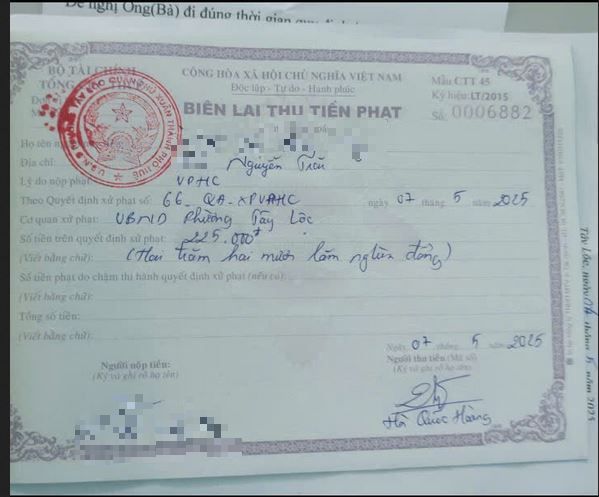 Đề nghị Ông(Bà) đi đúng thời gian
BỘ TÀI CHÍNH
TỔNG CỤC
CỘNG HÒA XÃ HỘI CHỦ NGHĨA VIỆT NAM
Độc lập - Tự do - Hạnh phúc
Mẫu CTT 45
Ký hiệu: LT/2015
BIÊN LAI THU TIỀN PHẠT
Số: 0006882
U.B.N.D PHƯỜNG TÂY LỘC QUẬN PHÚ XUÂN THÀNH PHỐ HUẾ
Họ tên
Địa chỉ: Nguyễn Trãi
Lý do nộp phạt: VPHC
Theo Quyết định xử phạt số: 66 QĐ-XPVPHC ngày 07 tháng 5 năm 2025
Cơ quan xử phạt: UBND Phường Tây Lộc
Số tiền trên quyết định xử phạt: 225.000đ
(Viết bằng chữ): (Hai trăm hai mươi lăm nghìn đồng)
Số tiền phạt do chậm thi hành quyết định xử phạt (nếu có):
(Viết bằng chữ):
Tổng số tiền:
(Viết bằng chữ):
Ngày 07 tháng 5 năm 2025
Người nộp tiền:
(Ký và ghi rõ họ tên)
Người thu tiền (Mã số)
(Ký và ghi rõ họ tên)
Hồ Quốc Hoàng
Tây Lộc, ngày 07 tháng 5 năm 2025